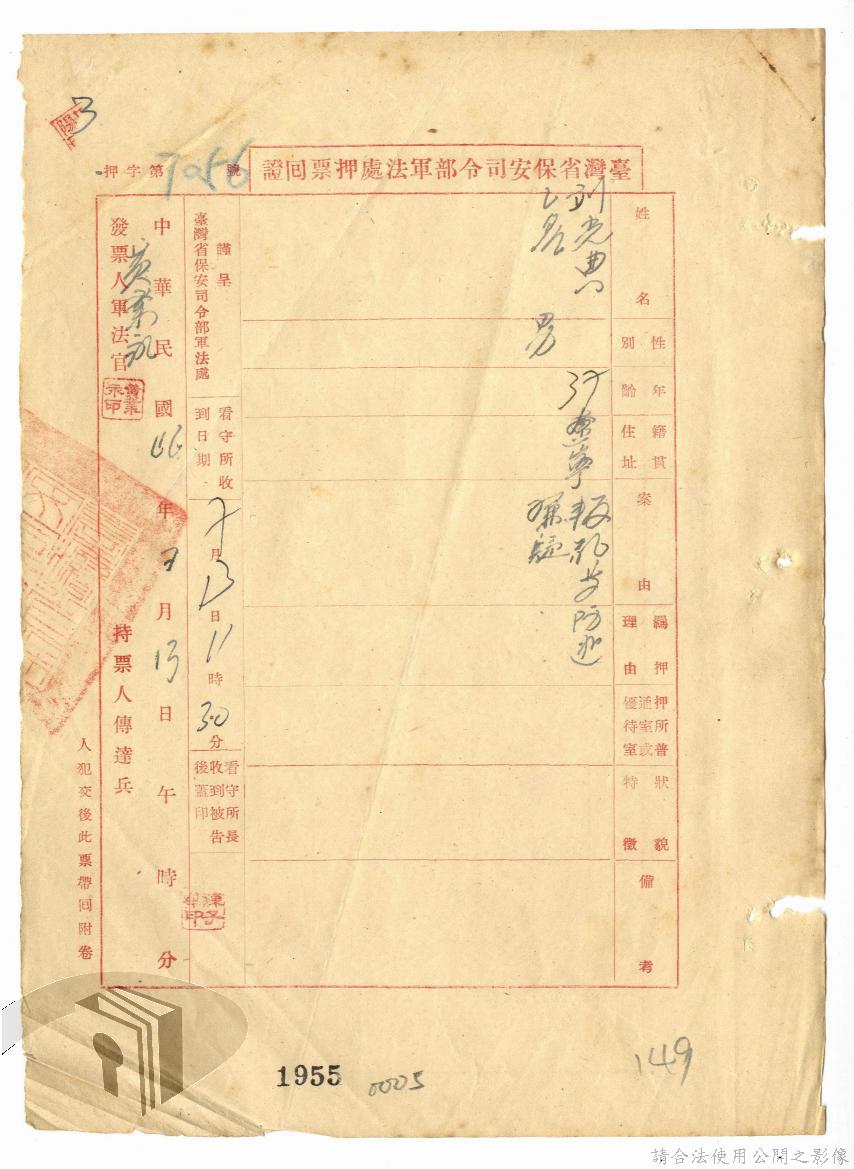 臺灣省保安司令部軍法處押票回證
押字第7056號
姓名
劉光典
乙名
性別
男
年齡
37
籍貫住址
遼寧
案由
叛亂
嫌疑
羈押理由
防逃
押所普通室或優待室
狀貌特徵
備考
謹呈
臺灣省保安司令部軍法處
看守所收到日期
月13日11時30分
看守所長收到被告後蓋印
中華民國年月13日午時分
發票人軍法官
持票人傳達兵
人犯交後此票帶回附卷
1955
0005
149
請合法使用公開之影像